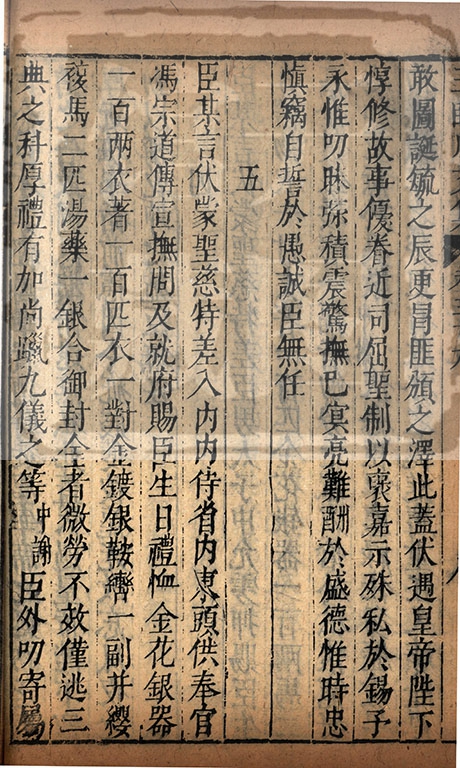 敢圖誕毓之辰更冐匪頒之澤此蓋伏遇皇帝陛下
惇修故事優眷近司屈聖制以褒嘉示殊私於錫予
永惟叨昧弥積震驚撫巳寘亮難酬於盛德惟時忠
慎竊自誓於愚誠臣無任
五
臣某言伏蒙聖慈特差入内内侍省内東頭供奉官
馮宗道傳宣撫問及就府賜臣生日禮恤金花銀器
一百两衣著一百匹衣一對金鍍銀鞍轡一副并纓
複馬二匹湯藥一銀合御封全者微勞不效僅逃三
典之科厚禮有加尚躐九儀之等中謝臣外叨寄屬